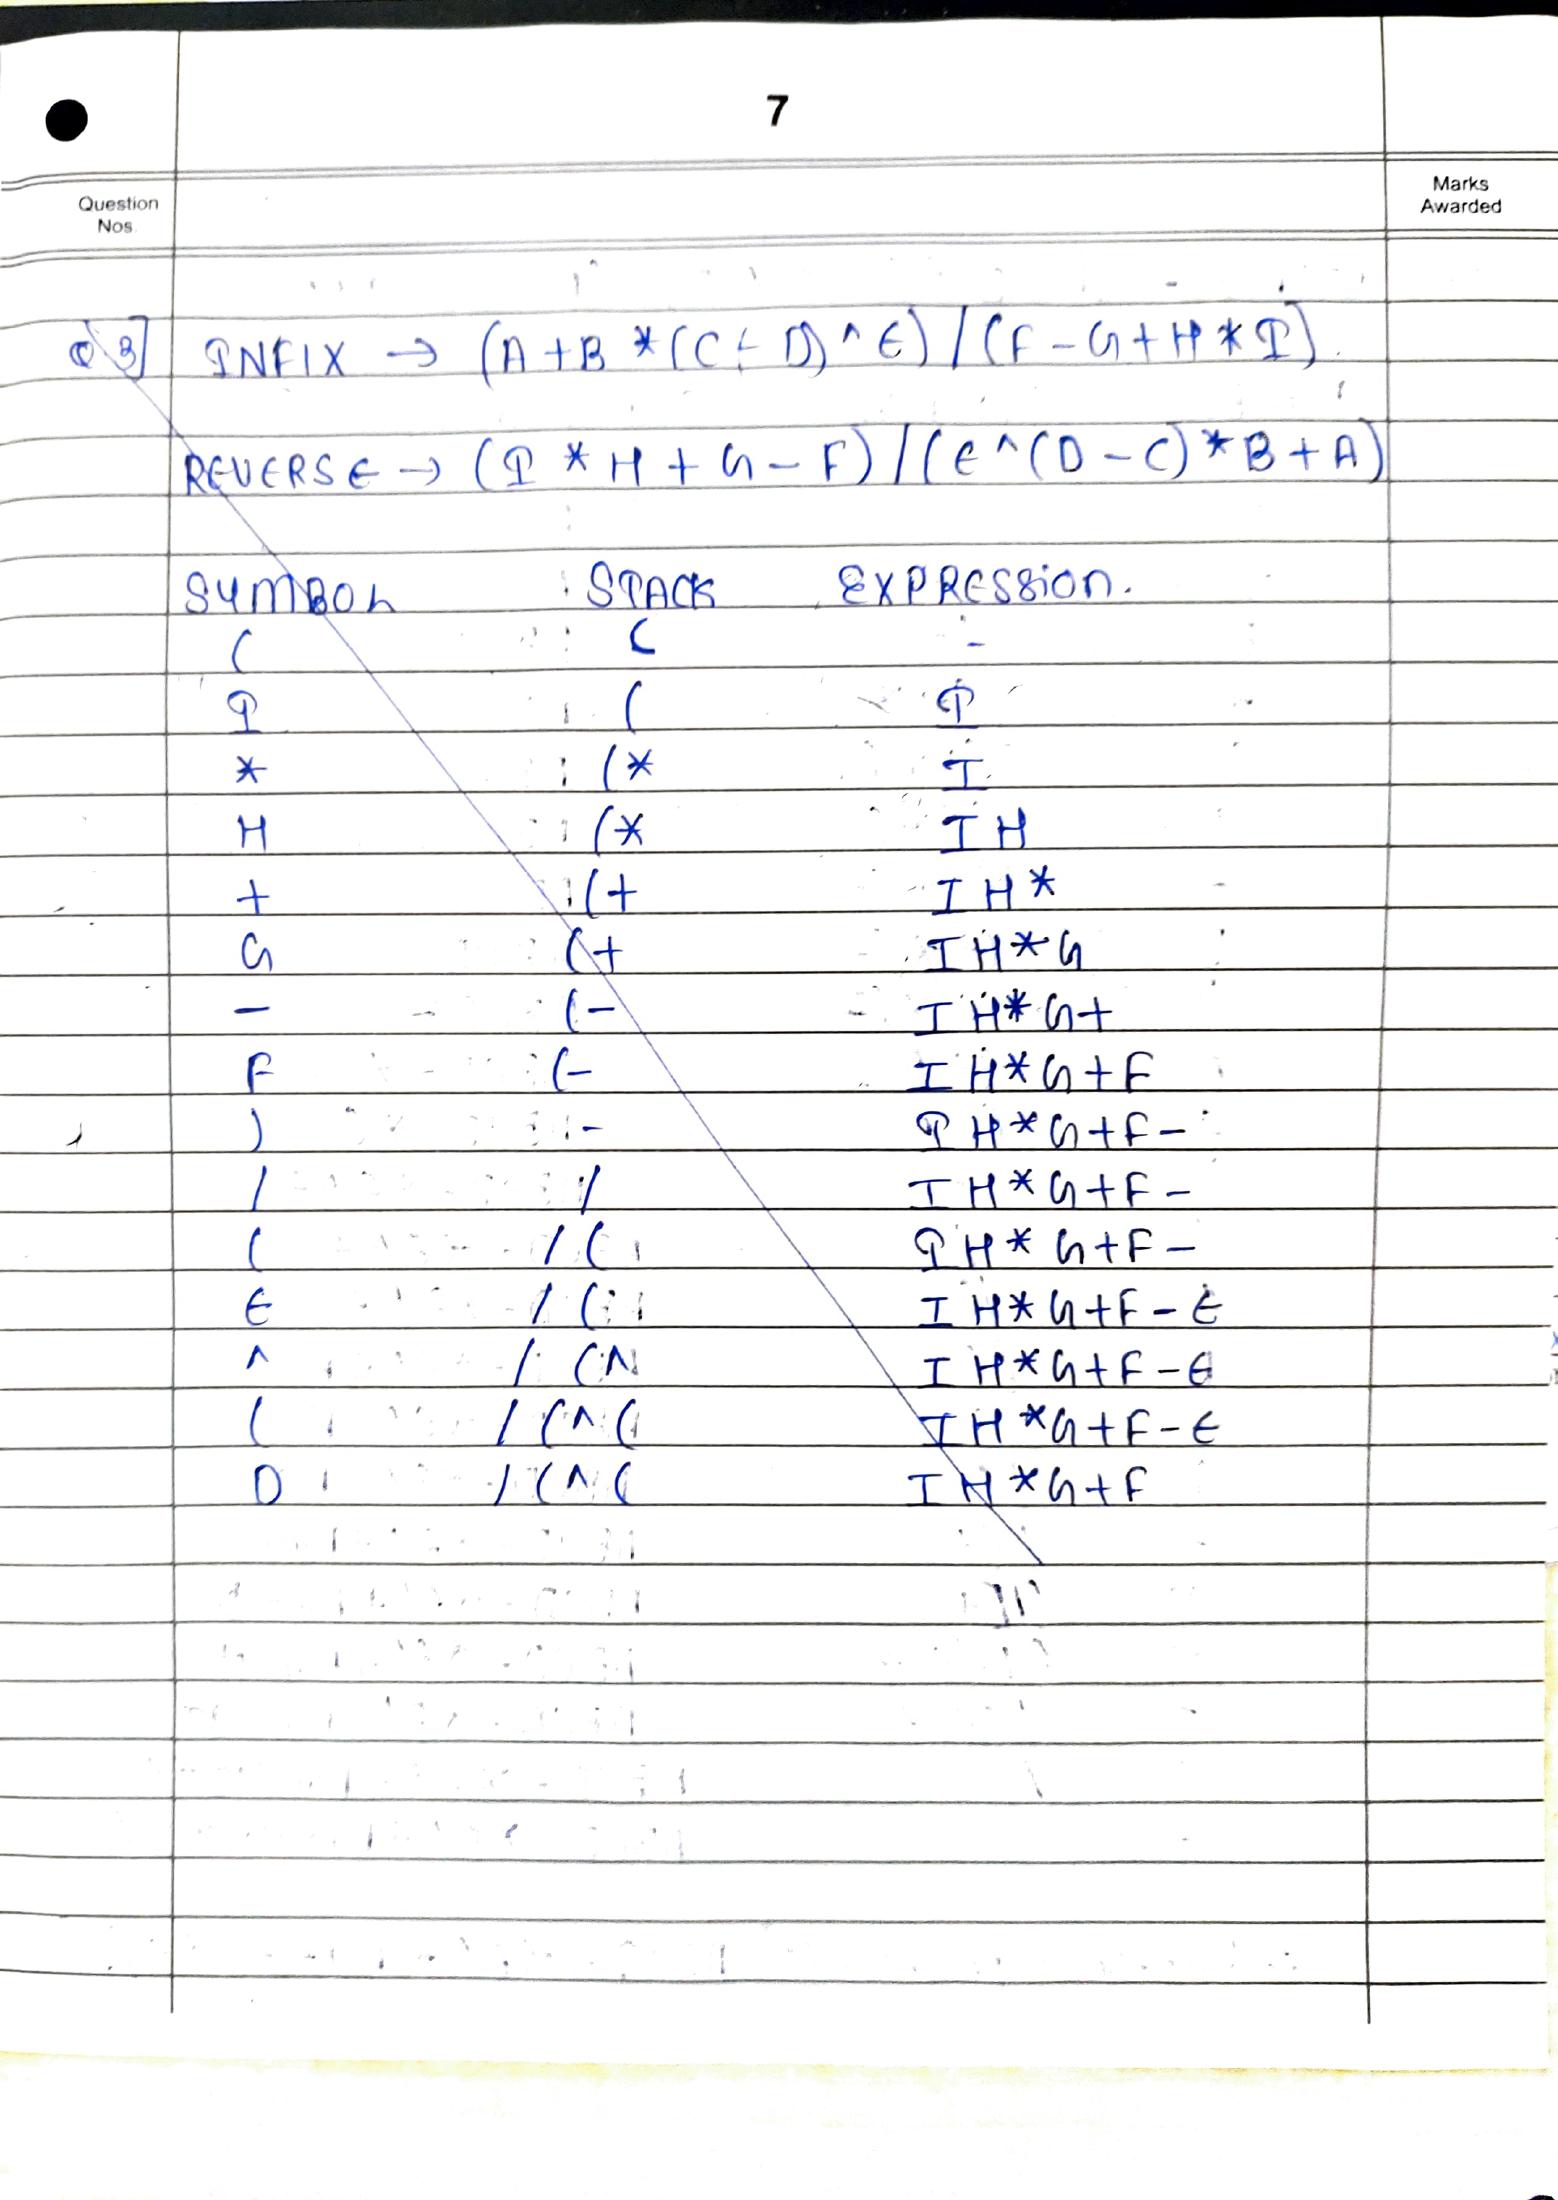 7
Question Nos.
Marks Awarded
Q 3] INFIX → (A+B*(C-D)^E)/(F-G+H*I)
REVERSE → (I*H+G-F)/(E^(D-C)*B+A)
SYMBOL STACK EXPRESSION.
( ( -
I ( I
* (* I
H (* IH
+ (+ IH*
G (+ IH*G
- (- IH*G+
F (- IH*G+F
) - IH*G+F-
/ / IH*G+F-
( /( IH*G+F-
E /( IH*G+F-E
^ /(^ IH*G+F-E
( /(^( IH*G+F-E
D /(^( IH*G+F